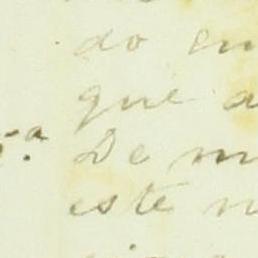 do en
que a
5.ª De m
este n